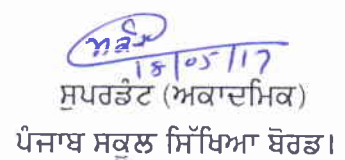 18/05/17
ਸੁਪਰਡੰਟ (ਅਕਾਦਮਿਕ)
ਪੰਜਾਬ ਸਕੂਲ ਸਿੱਖਿਆ ਬੋਰਡ।